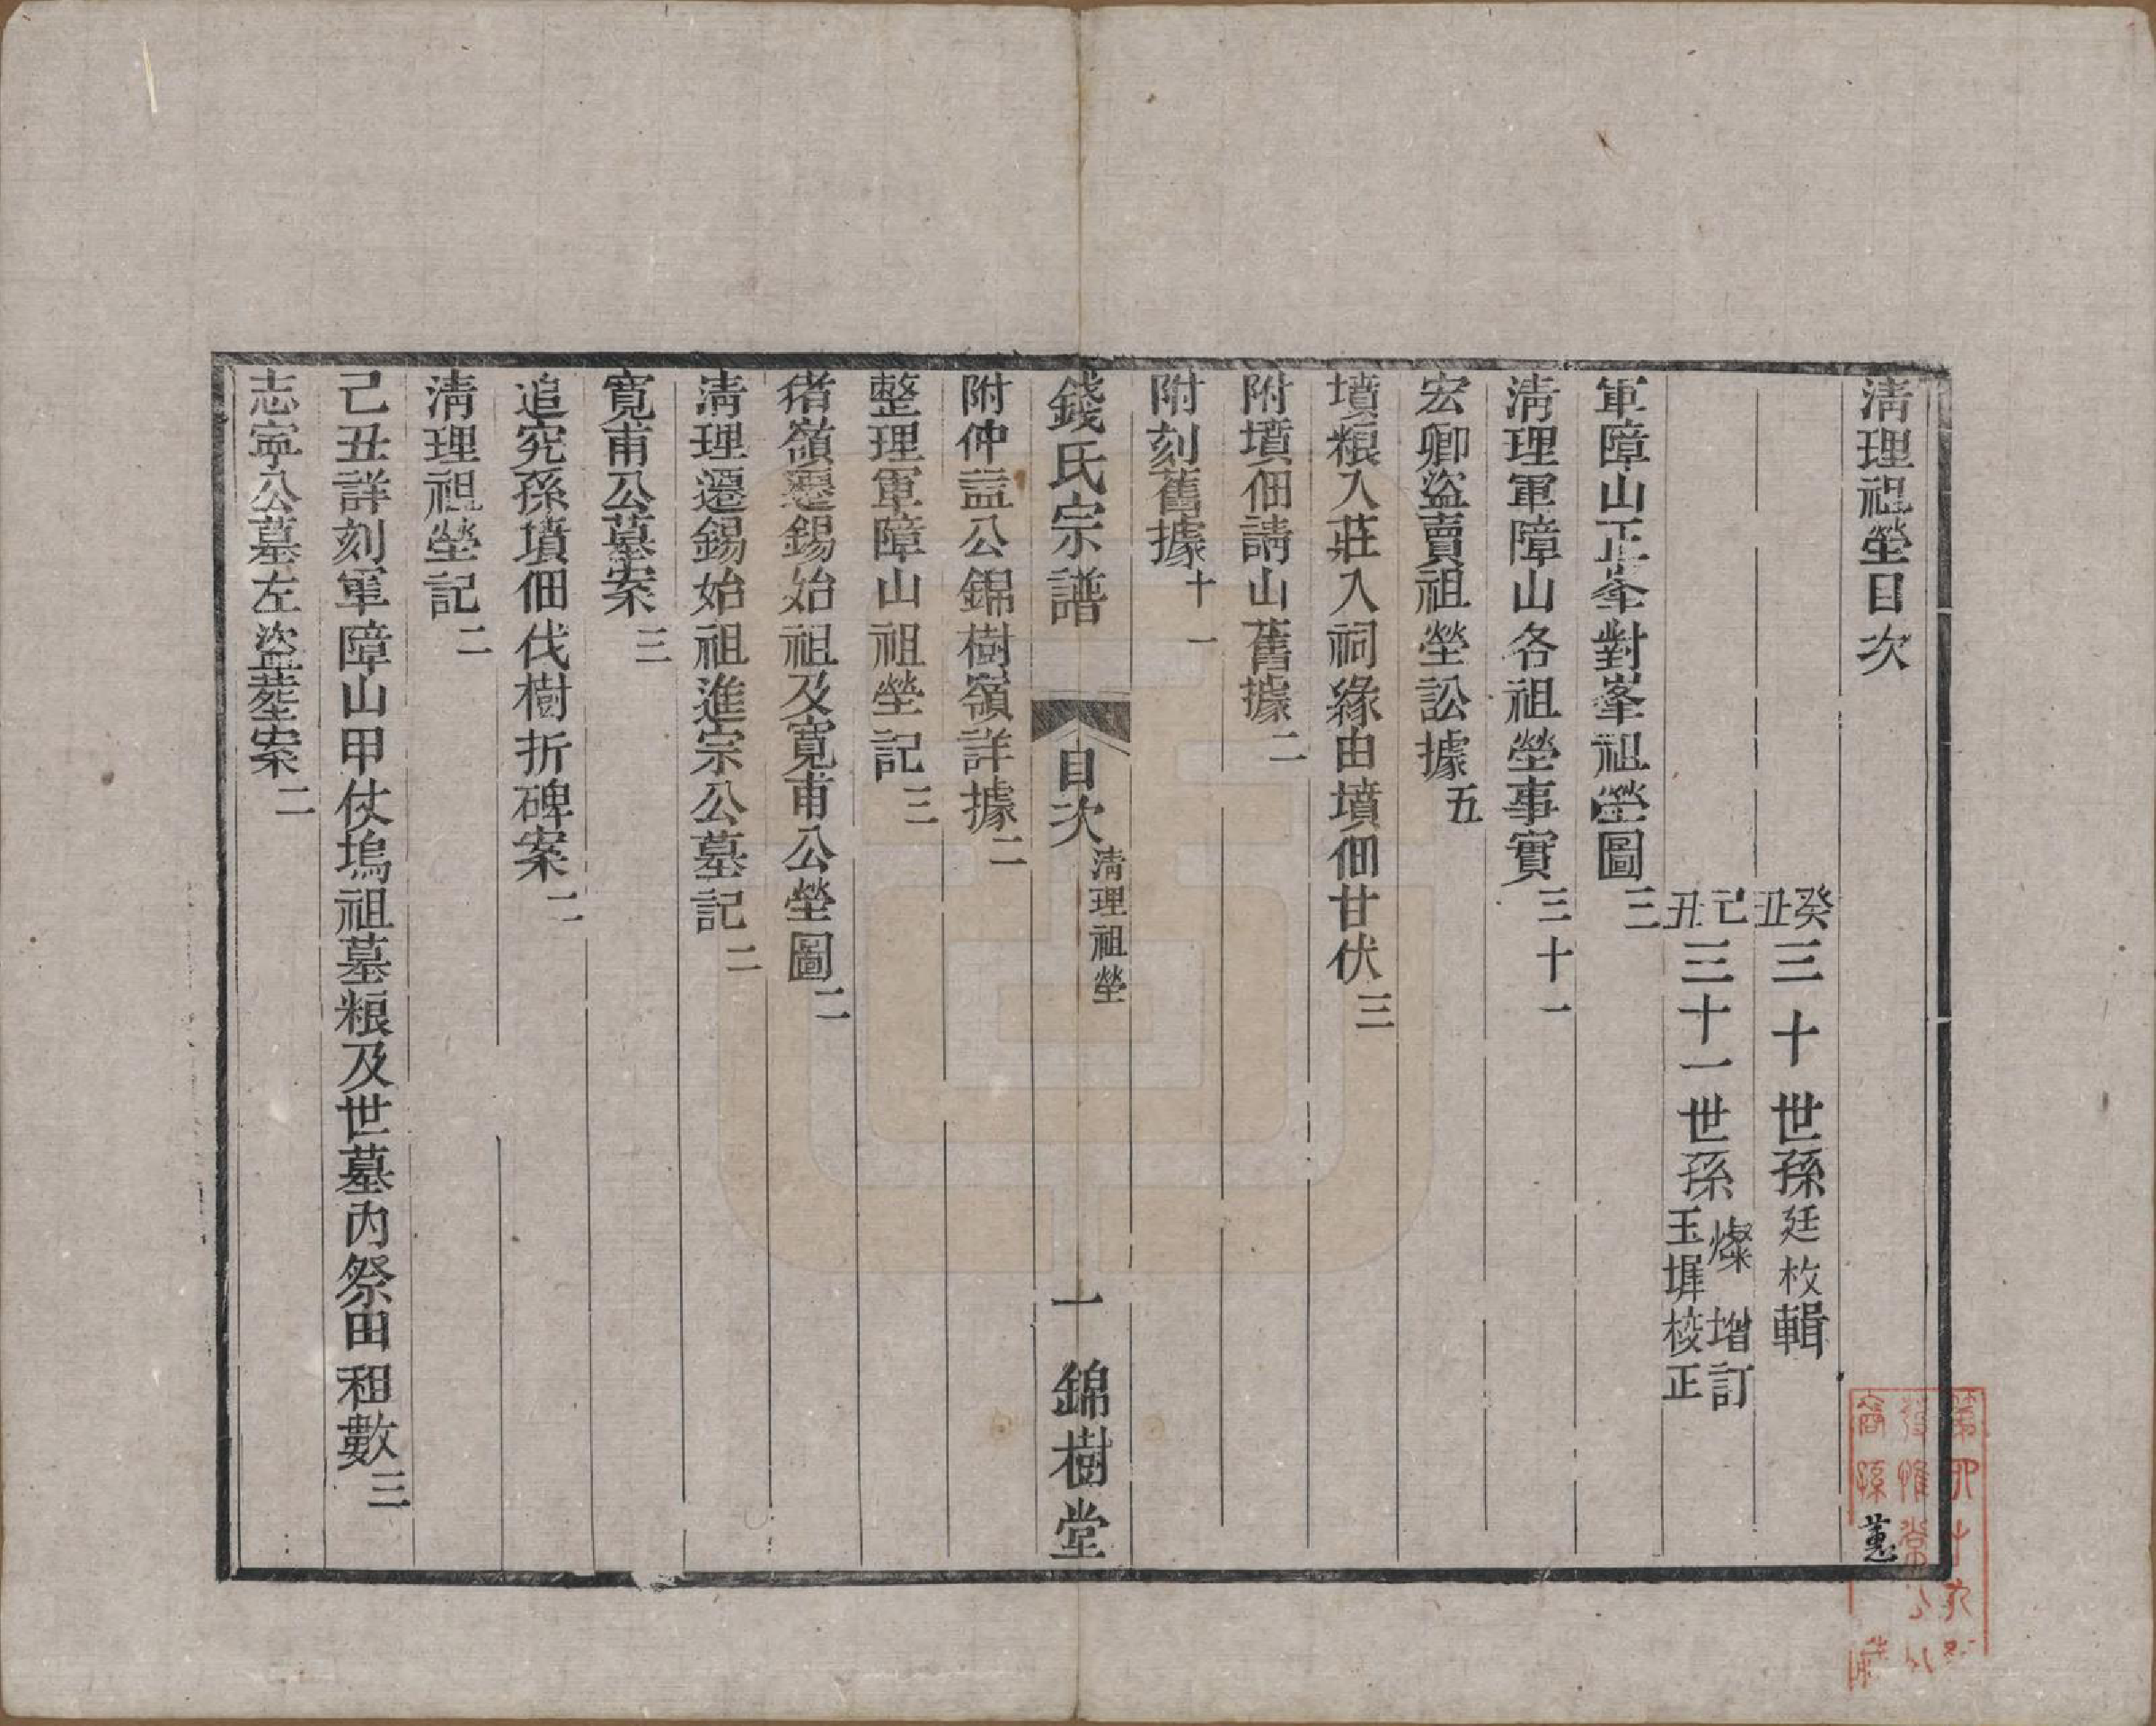 清理祖塋目次
癸丑三十世孫廷枚輯
己丑三十一世孫燦增訂
玉墀校正
軍障山正峯對峯祖塋圖三
清理軍障山各祖塋事實三十一
宏卿盜賣祖塋訟據五
墳粮入莊入祠緣由墳佃甘伏三
附墳佃請山舊據二
附刻舊據十一
錢氏宗譜 目次 清理祖塋 一 錦樹堂
附仲諡公錦樹嶺詳據二
整理軍障山祖塋記三
猪嶺遷錫始祖及寛甫公塋圖二
清理遷錫始祖進宗公墓記二
寛甫公墓案三
追究孫墳佃伐樹折碑案二
清理祖塋記二
己丑詳刻軍障山甲仗塢祖墓粮及世墓内祭田租數三
志寧公墓左盜塟案二
蕙